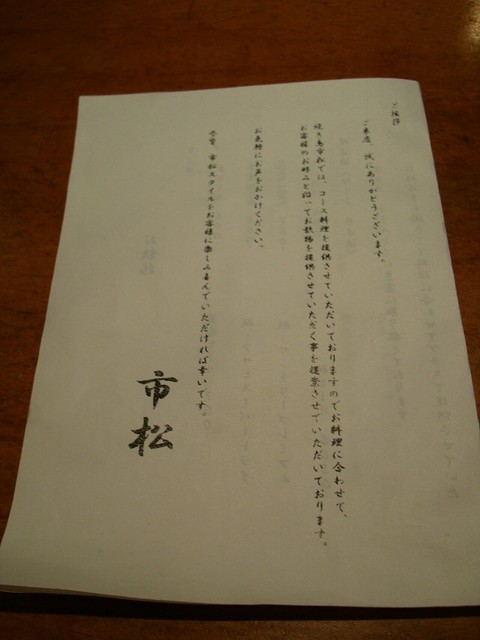 ご挨拶
ご来店、誠にありがとうございます。
焼き鳥市松では、コース料理を提供させていただいておりますのでお料理に合わせて、
お客様のお好みを伺ってお飲物を提供させていただく事を提案させていただいております。
お気軽にお声をおかけください。
今宵 市松スタイルをお客様に楽しみ喜んでいただければ幸いです。
市松